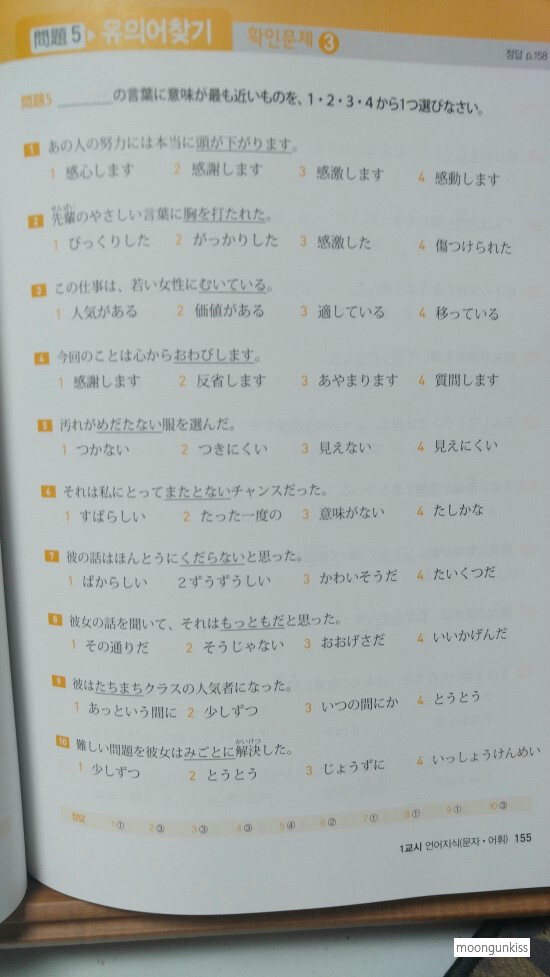 問題5 ▶ 유의어찾기 확인문제 3
정답 p.158
問題5 ______の言葉に意味が最も近いものを、1・2・3・4から1つ選びなさい。
1 あの人の努力には本当に頭が下がります。
1 感心します 2 感謝します 3 感激します 4 感動します
せんぱい
2 先輩のやさしい言葉に胸を打たれた。
1 びっくりした 2 がっかりした 3 感激した 4 傷つけられた
3 この仕事は、若い女性にむいている。
1 人気がある 2 価値がある 3 適している 4 移っている
4 今回のことは心からおわびします。
1 感謝します 2 反省します 3 あやまります 4 質問します
5 汚れがめだたない服を選んだ。
1 つかない 2 つきにくい 3 見えない 4 見えにくい
6 それは私にとってまたとないチャンスだった。
1 すばらしい 2 たった一度の 3 意味がない 4 たしかな
7 彼の話はほんとうにくだらないと思った。
1 ばからしい 2 ずうずうしい 3 かわいそうだ 4 たいくつだ
8 彼女の話を聞いて、それはもっともだと思った。
1 その通りだ 2 そうじゃない 3 おおげさだ 4 いいかげんだ
9 彼はたちまちクラスの人気者になった。
1 あっという間に 2 少しずつ 3 いつの間にか 4 とうとう
かいけつ
10 難しい問題を彼女はみごとに解決した。
1 少しずつ 2 とうとう 3 じょうずに 4 いっしょうけんめい
정답 1① 2③ 3③ 4③ 5④ 6② 7① 8① 9① 10③
1교시 언어지식(문자・어휘) 155
moongunkiss